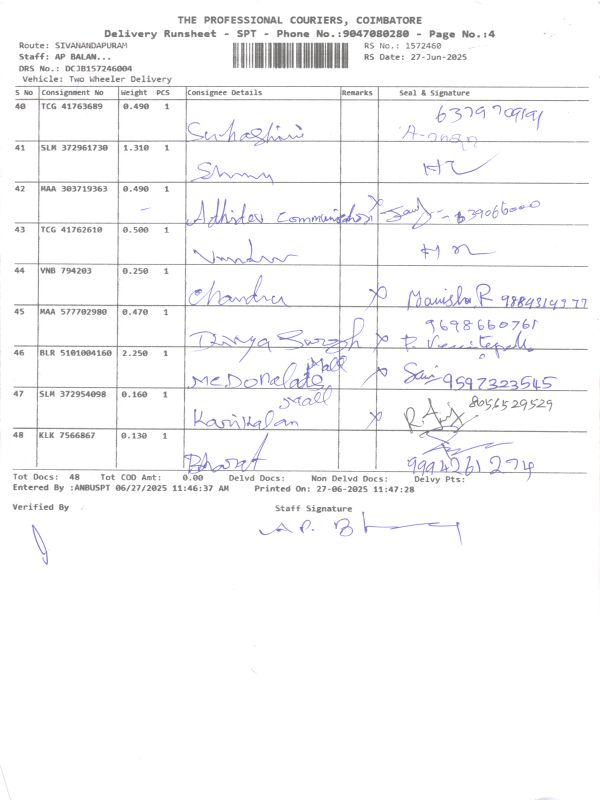 THE PROFESSIONAL COURIERS, COIMBATORE
Delivery Runsheet - SPT - Phone No.:9047080280 - Page No.:4
Route: SIVANANDAPURAM RS No.: 1572460
Staff: AP BALAN... RS Date: 27-Jun-2025
DRS No.: DCJB157246004
Vehicle: Two Wheeler Delivery
S No Consignment No Weight PCS Consignee Details Remarks Seal & Signature
40 TCG 41763689 0.490 1
Suhashini
41 SLM 372961730 1.310 1
42 MAA 303719363 0.490 1
43 TCG 41762610 0.500 1
44 VNB 794203 0.250 1
Chandru Manisha R
45 MAA 577702980 0.470 1 9698660761
46 BLR 5101004160 2.250 1 Mall
McDonalads 9597323545
47 SLM 372954098 0.160 1 Mall 8056529529
48 KLK 7566867 0.130 1
Bharat 9994261274
Tot Docs: 48 Tot COD Amt: 0.00 Delvd Docs: Non Delvd Docs: Delvy Pts:
Entered By :ANBUSPT 06/27/2025 11:46:37 AM Printed On: 27-06-2025 11:47:28
Verified By Staff Signature
A P.